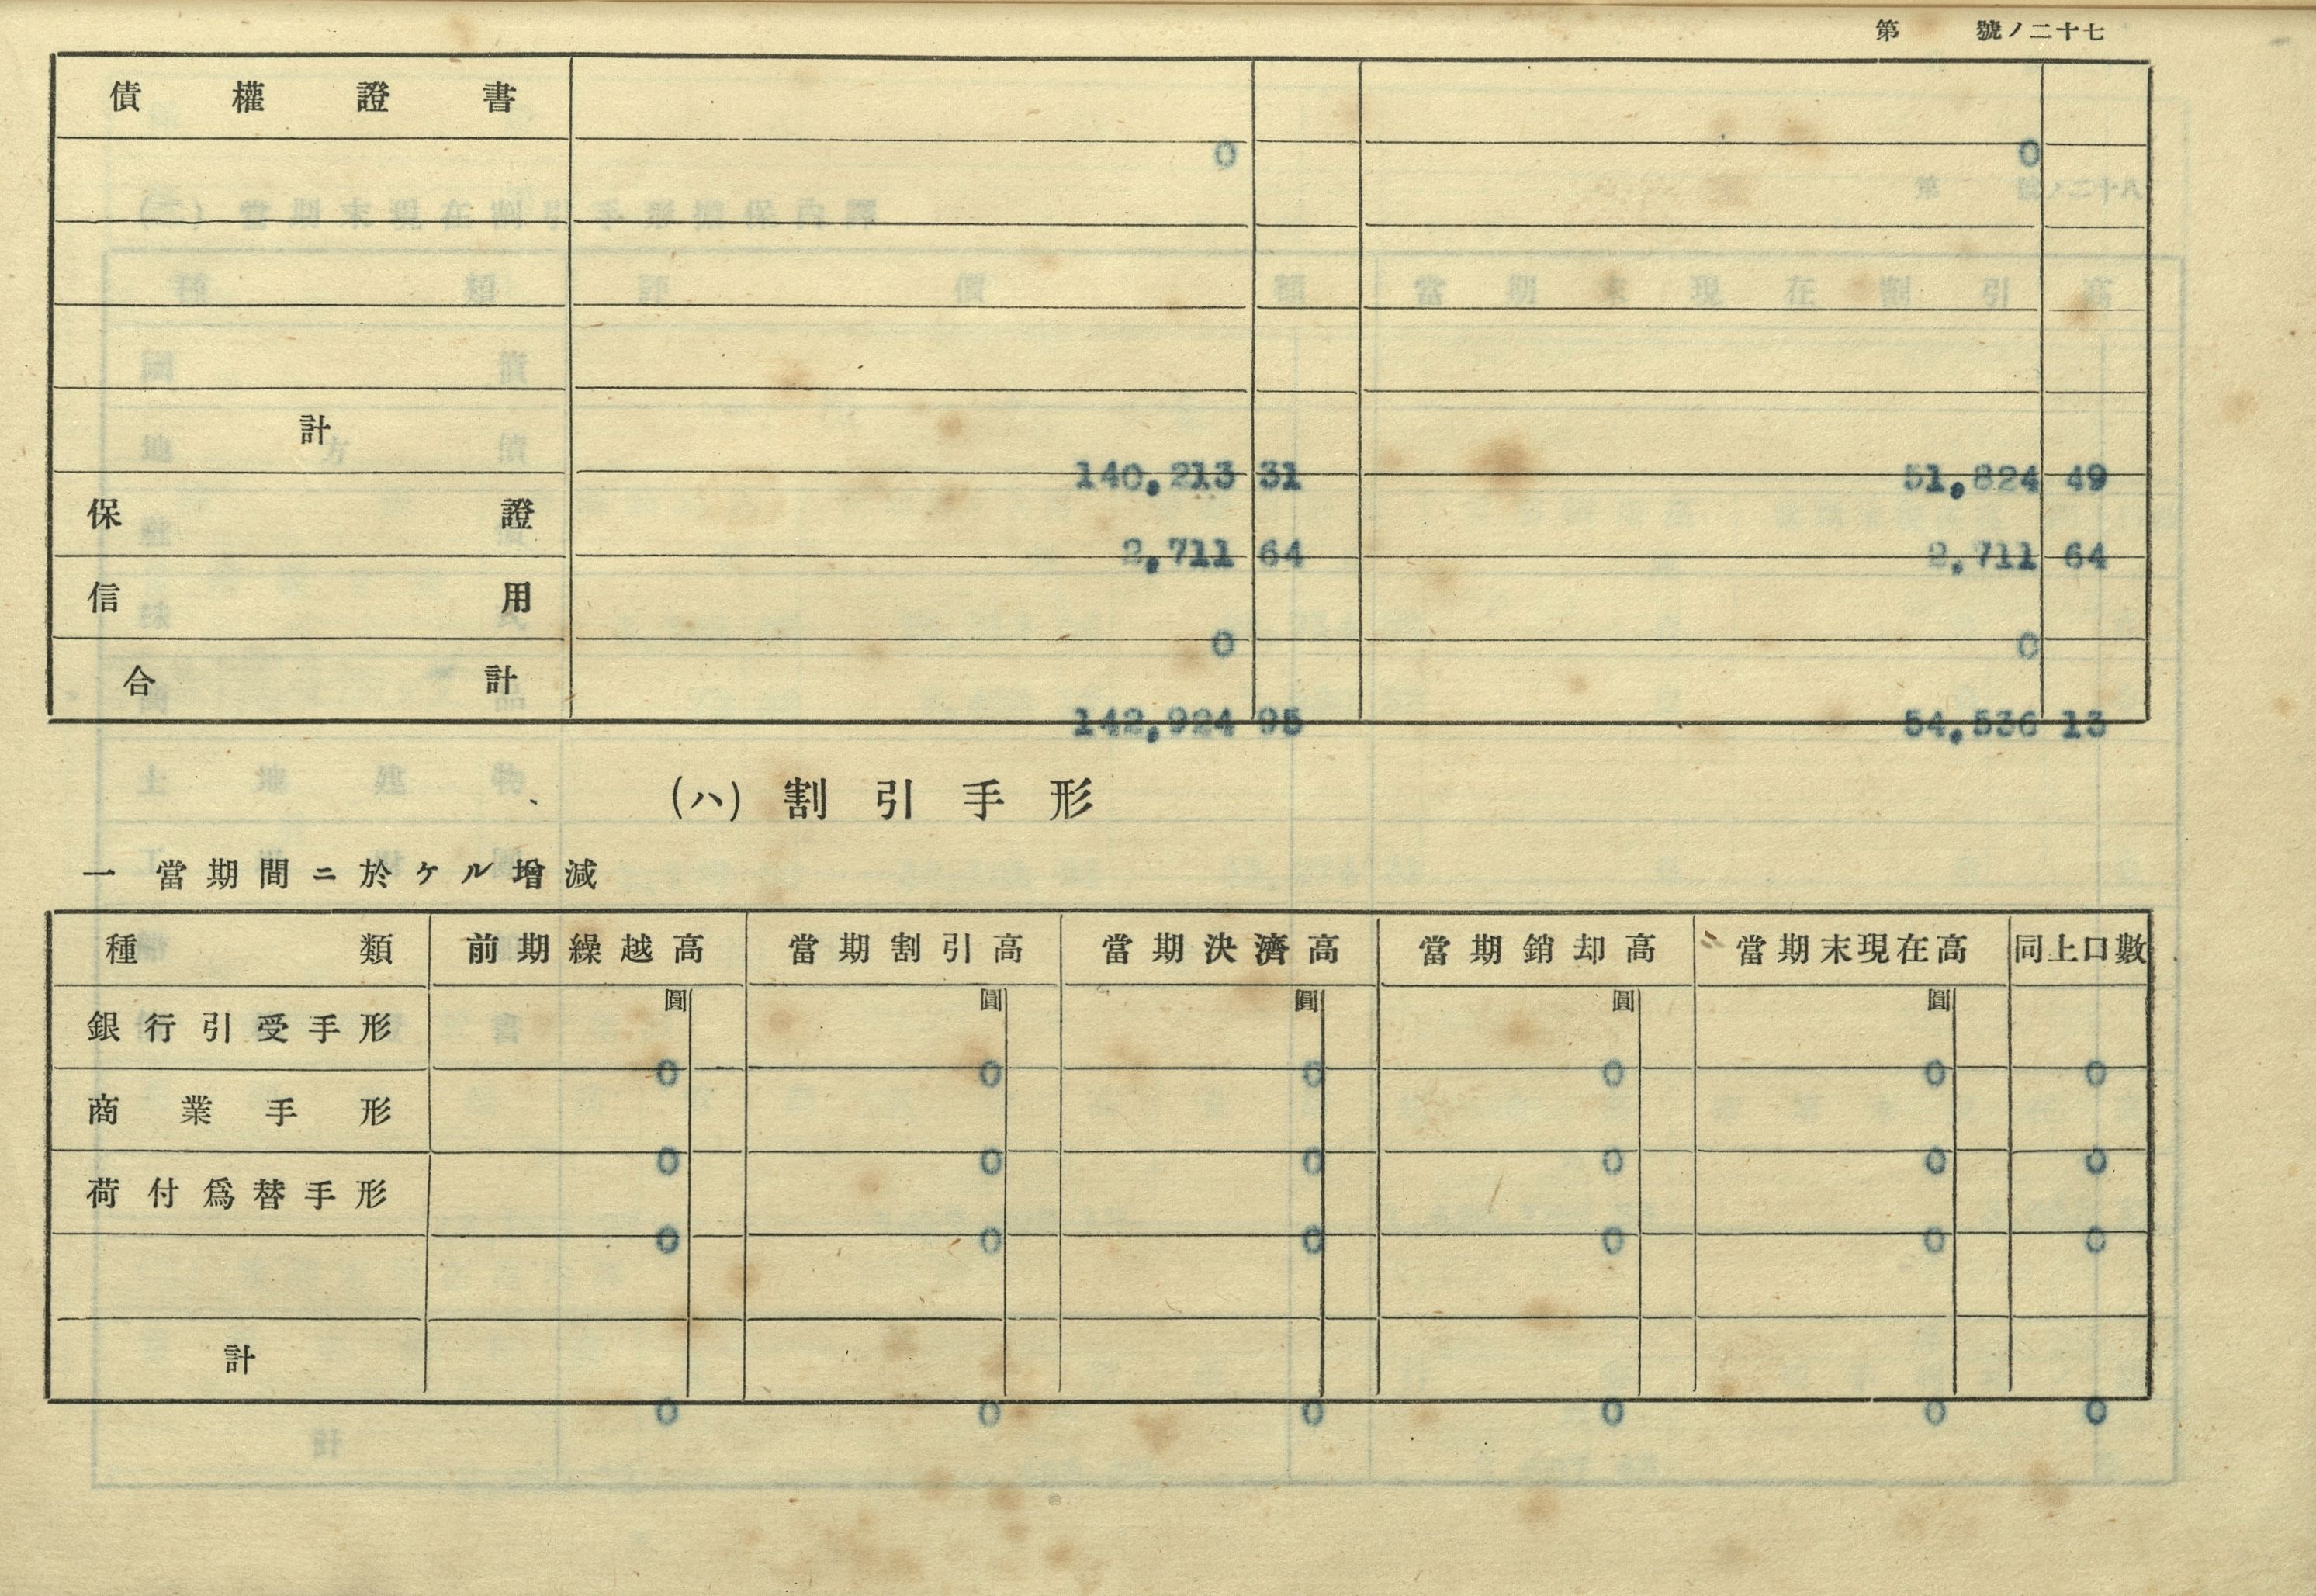 第 號ノ二十七
債權證書 0 0
計 140,213 31 51,824 49
保證 2,711 64 2,711 64
信用 0 0
合計 142,924 95 54,536 13
(ハ) 割引手形
一 當期間ニ於ケル增減
種類 前期繰越高 當期割引高 當期決濟高 當期銷却高 當期末現在高 同上口數
圓 圓 圓 圓 圓
銀行引受手形 0 0 0 0 0 0
商業手形 0 0 0 0 0 0
荷付爲替手形 0 0 0 0 0 0
計 0 0 0 0 0 0